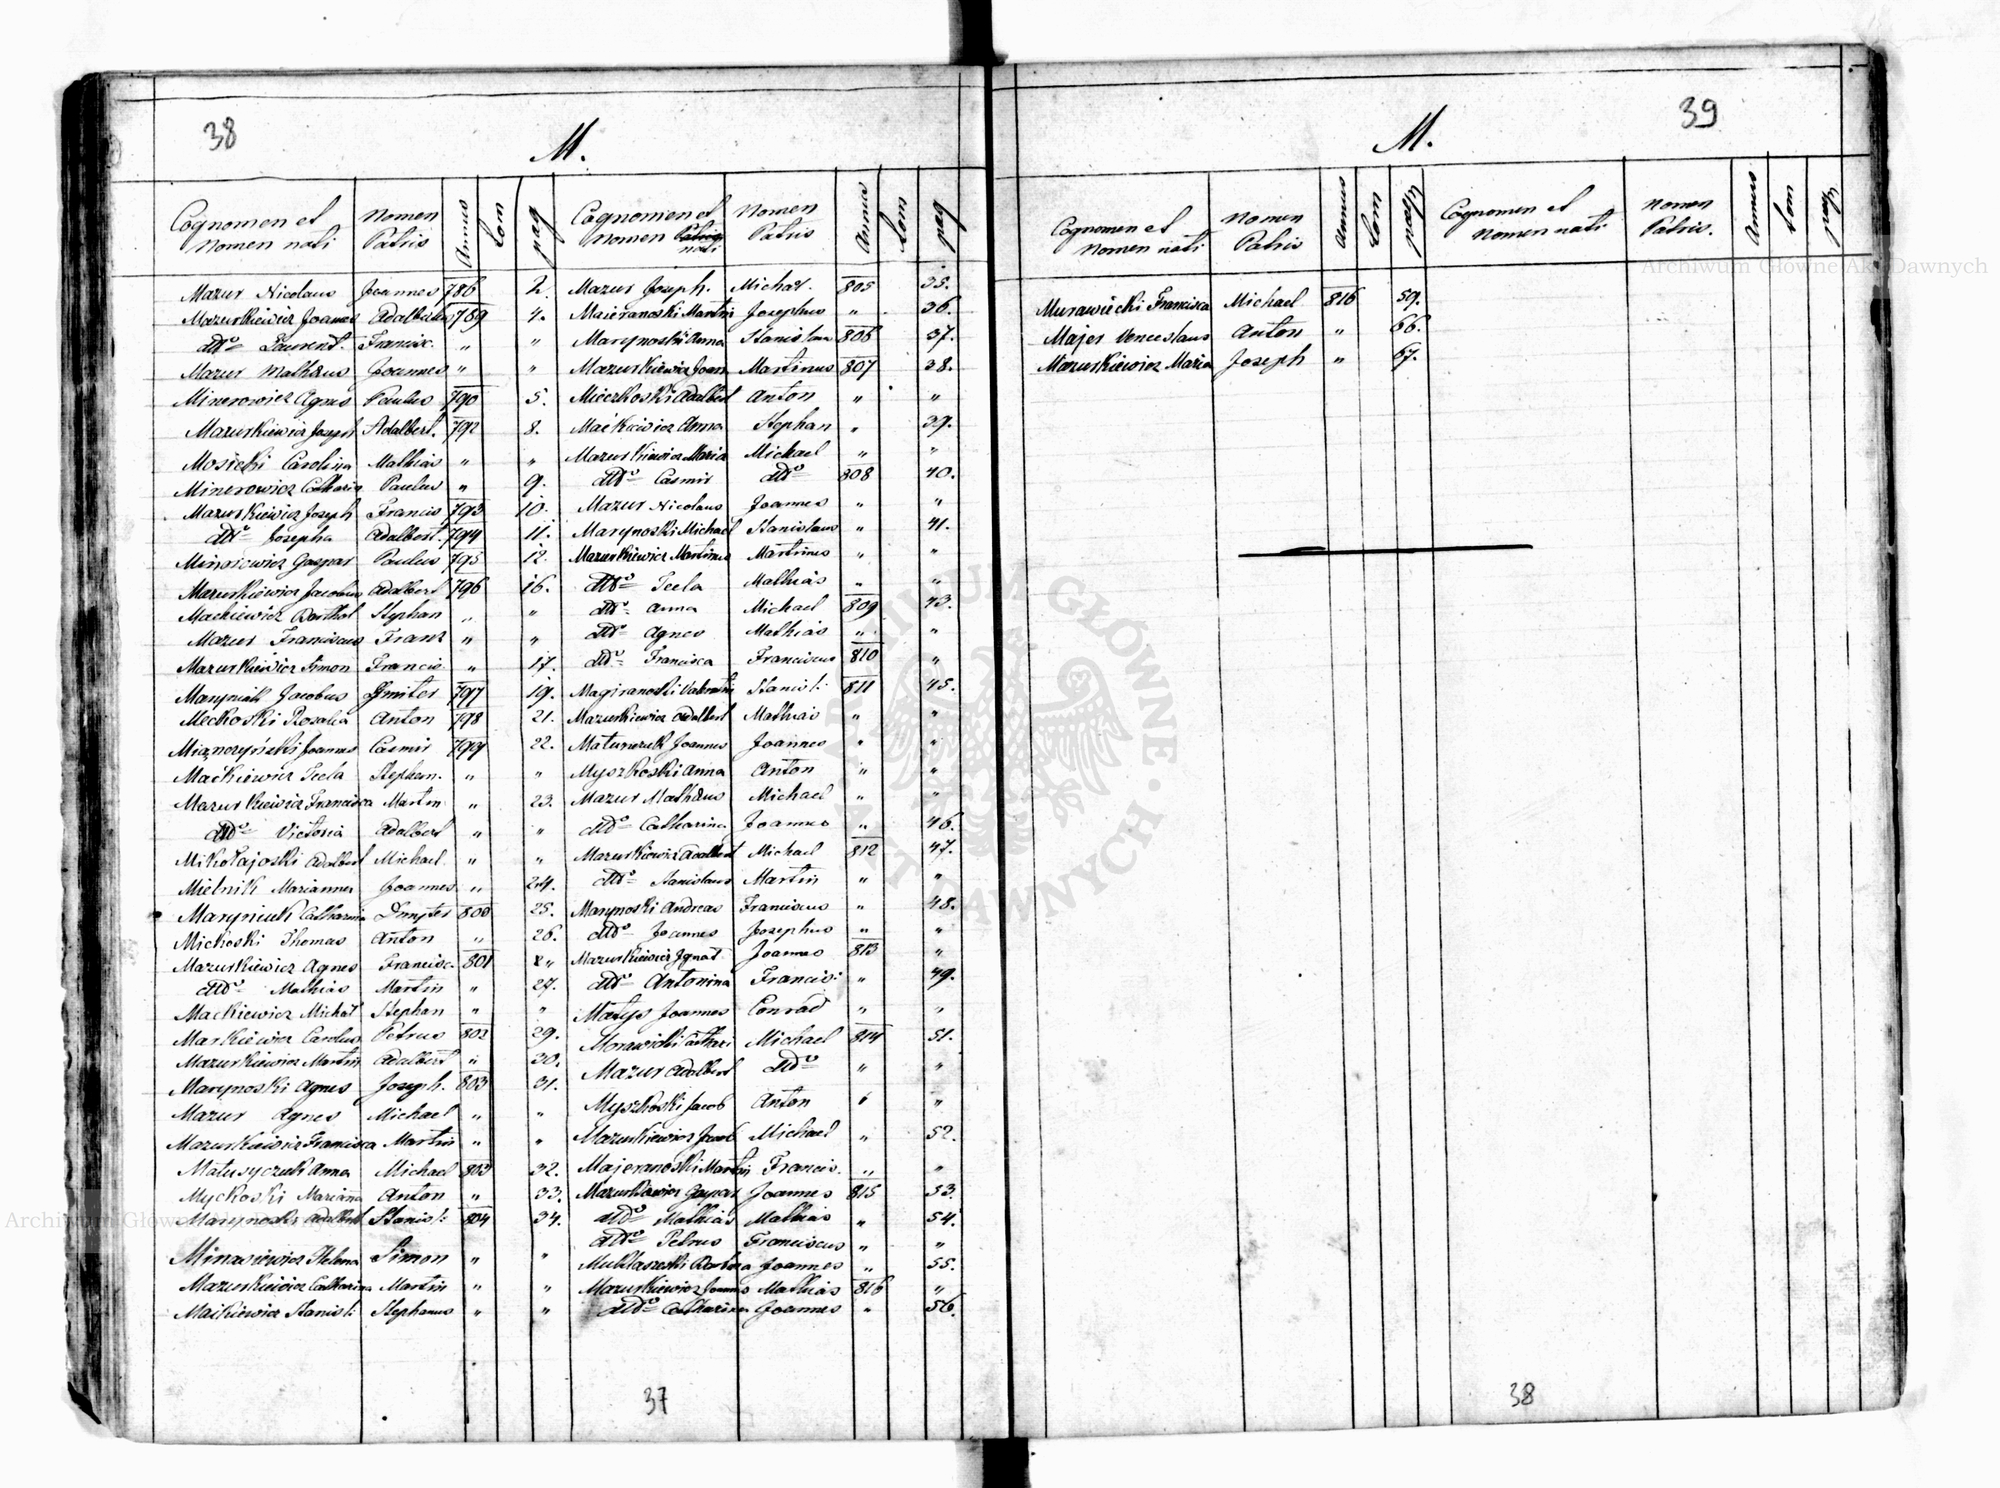 38
M.
Cognomen et Nomen nati Nomen Patris Annus tom pag
Mazur Nicolaus Joannes 786 2.
Mazurkiewicz Joannes Adalbertus 789 4.
dtto Laurent. Francisc. " "
Mazur Mathäus Joannes " "
Minerowicz Agnes Paulus 790 5.
Mazurkiewicz Joseph Adalbert. 792 8.
Mosicki Carolina Mathias " "
Minerowicz Catharin Paulus " 9.
Mazurkiewicz Joseph Francis 793 10.
dtto Josepha Adalbert. 794 11.
Gaspar Paulus 795 12.
Mazurkiewicz Jacobus Adalbert 796 16.
Mackiewicz Barthol Stephan " "
Mazur Franciscus Franz " "
Mazurkiewicz Simon Francis " 17.
Maryniak Jacobus Dmiter 797 19.
Meckoski Rosalia Anton 798 21.
Joannes Casmir 799 22.
Maćkiewicz Tecla Stephan. " "
Mazurkiewicz Francisca Martin " 23.
dtto Victoria Adalbert " "
Mikołajoski Adalbert Michael " "
Mielnik Marianna Joannes " 24.
Maryniuk Catharina Dmyter 800 25.
Mickoski Thomas Anton " 26.
Mazurkiewicz Agnes Francisc. 801 "
dtto Mathias Martin " 27.
Mackiewicz Michał Stephan " "
Markiewicz Carolus Petrus 802 29.
Mazurkiewicz Martin Adalbert " 30.
Marynoski Agnes Joseph. 803 31.
Mazur Agnes Michael " "
Mazurkiewicz Francisca Martin " "
Matusyczuk Anna Michael 803 32.
Myckoski Marianna Anton " 33.
Marynoski Adalbert Stanisl: 804 34.
Minasiewicz Helena Simon " "
Mazurkiewicz Catharina Martin " "
Maikiewicz Stanisl: Stephanus " "
Cognomen et Nomen nati Nomen Patris Annus tom pag
Mazur Joseph. Michał. 805 35.
Maieranoski Martin Josephus " 36.
Marynoski Anna Stanislaus 806 37.
Mazurkiewicz Joan Martinus 807 38.
Mieczkoski Adalbert Anton " "
Maćkiewicz Anna Stephan " 39.
Mazurkiewicz Maria Michael " "
dtto Casmir dtto 808 40.
Mazur Nicolaus Joannes " "
Marynoski Michael Stanislaus " 41.
Mazurkiewicz Martinus Martinus " "
dtto Tecla Mathias " "
dtto Anna Michael 809 43.
dtto Agnes Mathias " "
dtto Francisca Franciscus 810 "
Magiranoski Valentin Stanisl: 811 45.
Mazurkiewicz Adalbert Mathias " "
Joannes Joannes " "
Myszkoski Anna Anton " "
Mazur Mathäus Michael " "
dtto Catharina Joannes " 46.
Mazurkiewicz Adalbert Michael 812 47.
dtto Stanislaus Martin " "
Marynoski Andreas Franciscus " 48.
dtto Joannes Josephus " "
Mazurkiewicz Ignat Joannes 813 "
dtto Antonina Francis: " 49.
Matys Joannes Conrad " "
Morawicki Michael 814 51.
Mazur Adalbert dtto " "
Myszkoski Jacob Anton " "
Mazurkiewicz Jacob Michael " 52.
Majeranoski Martin Francis. " "
Mazurkiewicz Gaspar Joannes 815 53.
dtto Mathias Mathias " 54.
dtto Petrus Franciscus " "
Barbara Joannes " 55.
Mazurkiewicz Joannes Mathias 816 "
dtto Catharina Joannes " 56.
37
39
M.
Cognomen et Nomen nati Nomen Patris Annus tom pag
Murawiecki Francisca Michael 816 59.
Majer Venceslaus Anton " 66.
Mazurkiewicz Maria Joseph " 67.
Cognomen et Nomen nati Nomen Patris. Annus tom pag
38
ARCHIWUM GŁÓWNE AKT DAWNYCH
Archiwum Główne Akt Dawnych
Archiwum Główne Akt Dawnych